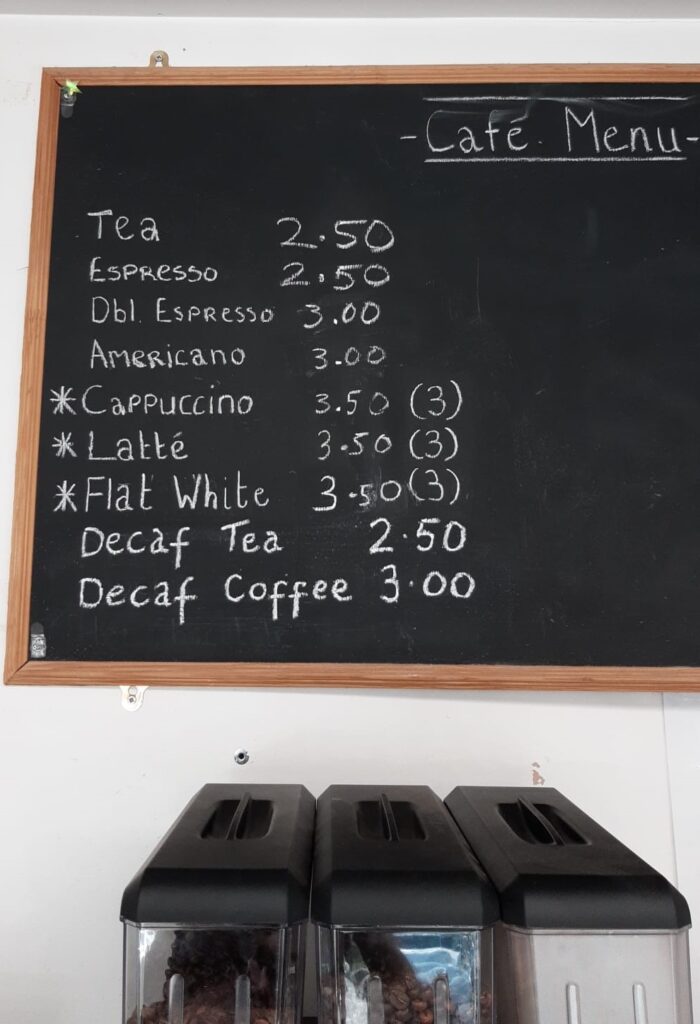 -Café Menu-
Tea 2.50
Espresso 2.50
Dbl. Espresso 3.00
Americano 3.00
*Cappuccino 3.50 (3)
*Latté 3.50 (3)
*Flat White 3.50 (3)
Decaf Tea 2.50
Decaf Coffee 3.00